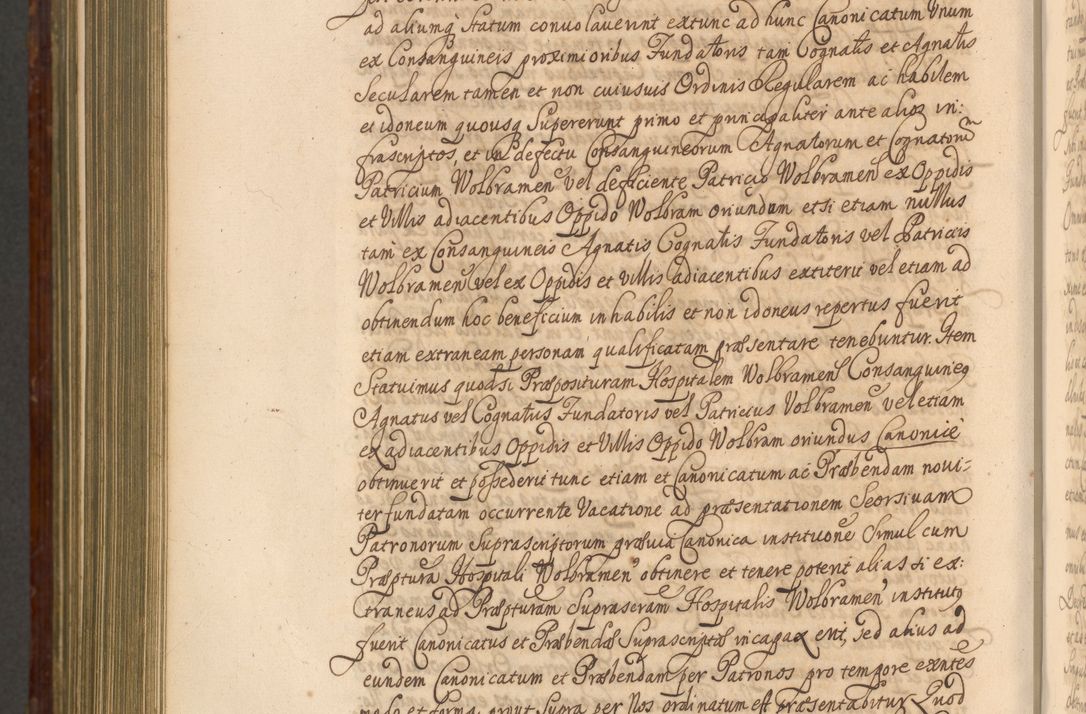 ad aliumq̨ Statum convolauerint extunc ad hunc Canonicatum Vnum
ex Consanguineis proximioribus Fundatoris tam Cognatis et Agnatis
Secularem tamen et non cuiusuis Ordinis Regularem ac habilem
et idoneum quousq̨ Supererunt primo et principaliter ante alios in:
frascriptos, et in defectu Consanguineorum Agnatorum et Cognatorū
Patricium Wolbramen̄ vel deficiente Patricio Wolbramen̄ ex Oppidis
et Villis adiacentibus Oppido Wolbram oriundum etsi etiam nullus
tam ex Consanguineis Agnatis Cognatis Fundatoris vel Patriciis
Wolbramen̄ vel ex Oppidis et villis adiacentibus extiterit vel etiam ad
obtinendum hoc beneficium inhabilis et non idoneus repertus fuerit
etiam extraneam personam qualificatam præsentare tenebuntur. Item
Statuimus quod si Præposituram Hospitalem Wolbramen̄ Consanguineꝯ
Agnatus vel Cognatus Fundatoris vel Patricius Volbramen̄ vel etiam
ex adiacentibus Oppidis et Villis Oppido Wolbram oriundus Canonice
obtinuerit et possederit tunc etiam et Canonicatum ac Præbendam novi-
ter fundatam occurrente Vacatione ad præsentationem Seorsivam
Patronorum Suprascriptorum prævia Canonica institutione Simul cum
Præptura Hospitali Wolbramen̄ obtinere et tenere poterit alias si ex:
traneus ad Præpturam Suprascram Hospitalis Wolbramen̄ institutꝯ
fuerit Canonicatus et Præbendæ Suprascriptæ incapax erit, sed alius ad
eundem Canonicatum et Præbendam per Patronos pro tempore exn̄tes
modo et forma, prout Supra per Nos ordinatum est præsentabitur. Quod